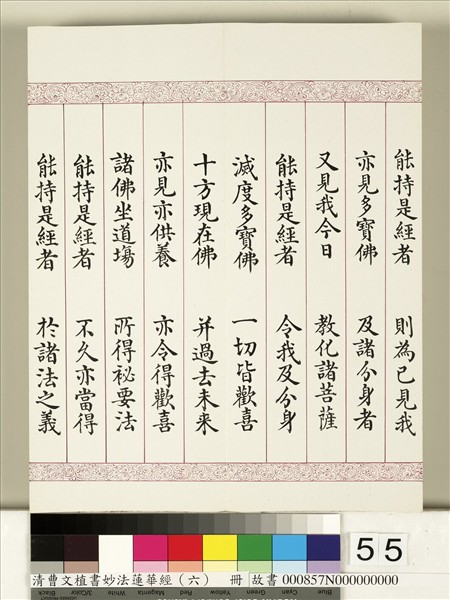 能持是經者 則為已見我
亦見多寶佛 及諸分身者
又見我今日 教化諸菩薩
能持是經者 令我及分身
滅度多寶佛 一切皆歡喜
十方現在佛 并過去未來
亦見亦供養 亦令得歡喜
諸佛坐道場 所得祕要法
能持是經者 不久亦當得
能持是經者 於諸法之義
55
Black 3/Color White Magenta Red Yellow Green Cyan Blue
清曹文植書妙法蓮華經(六) 冊 故書 000857N000000000